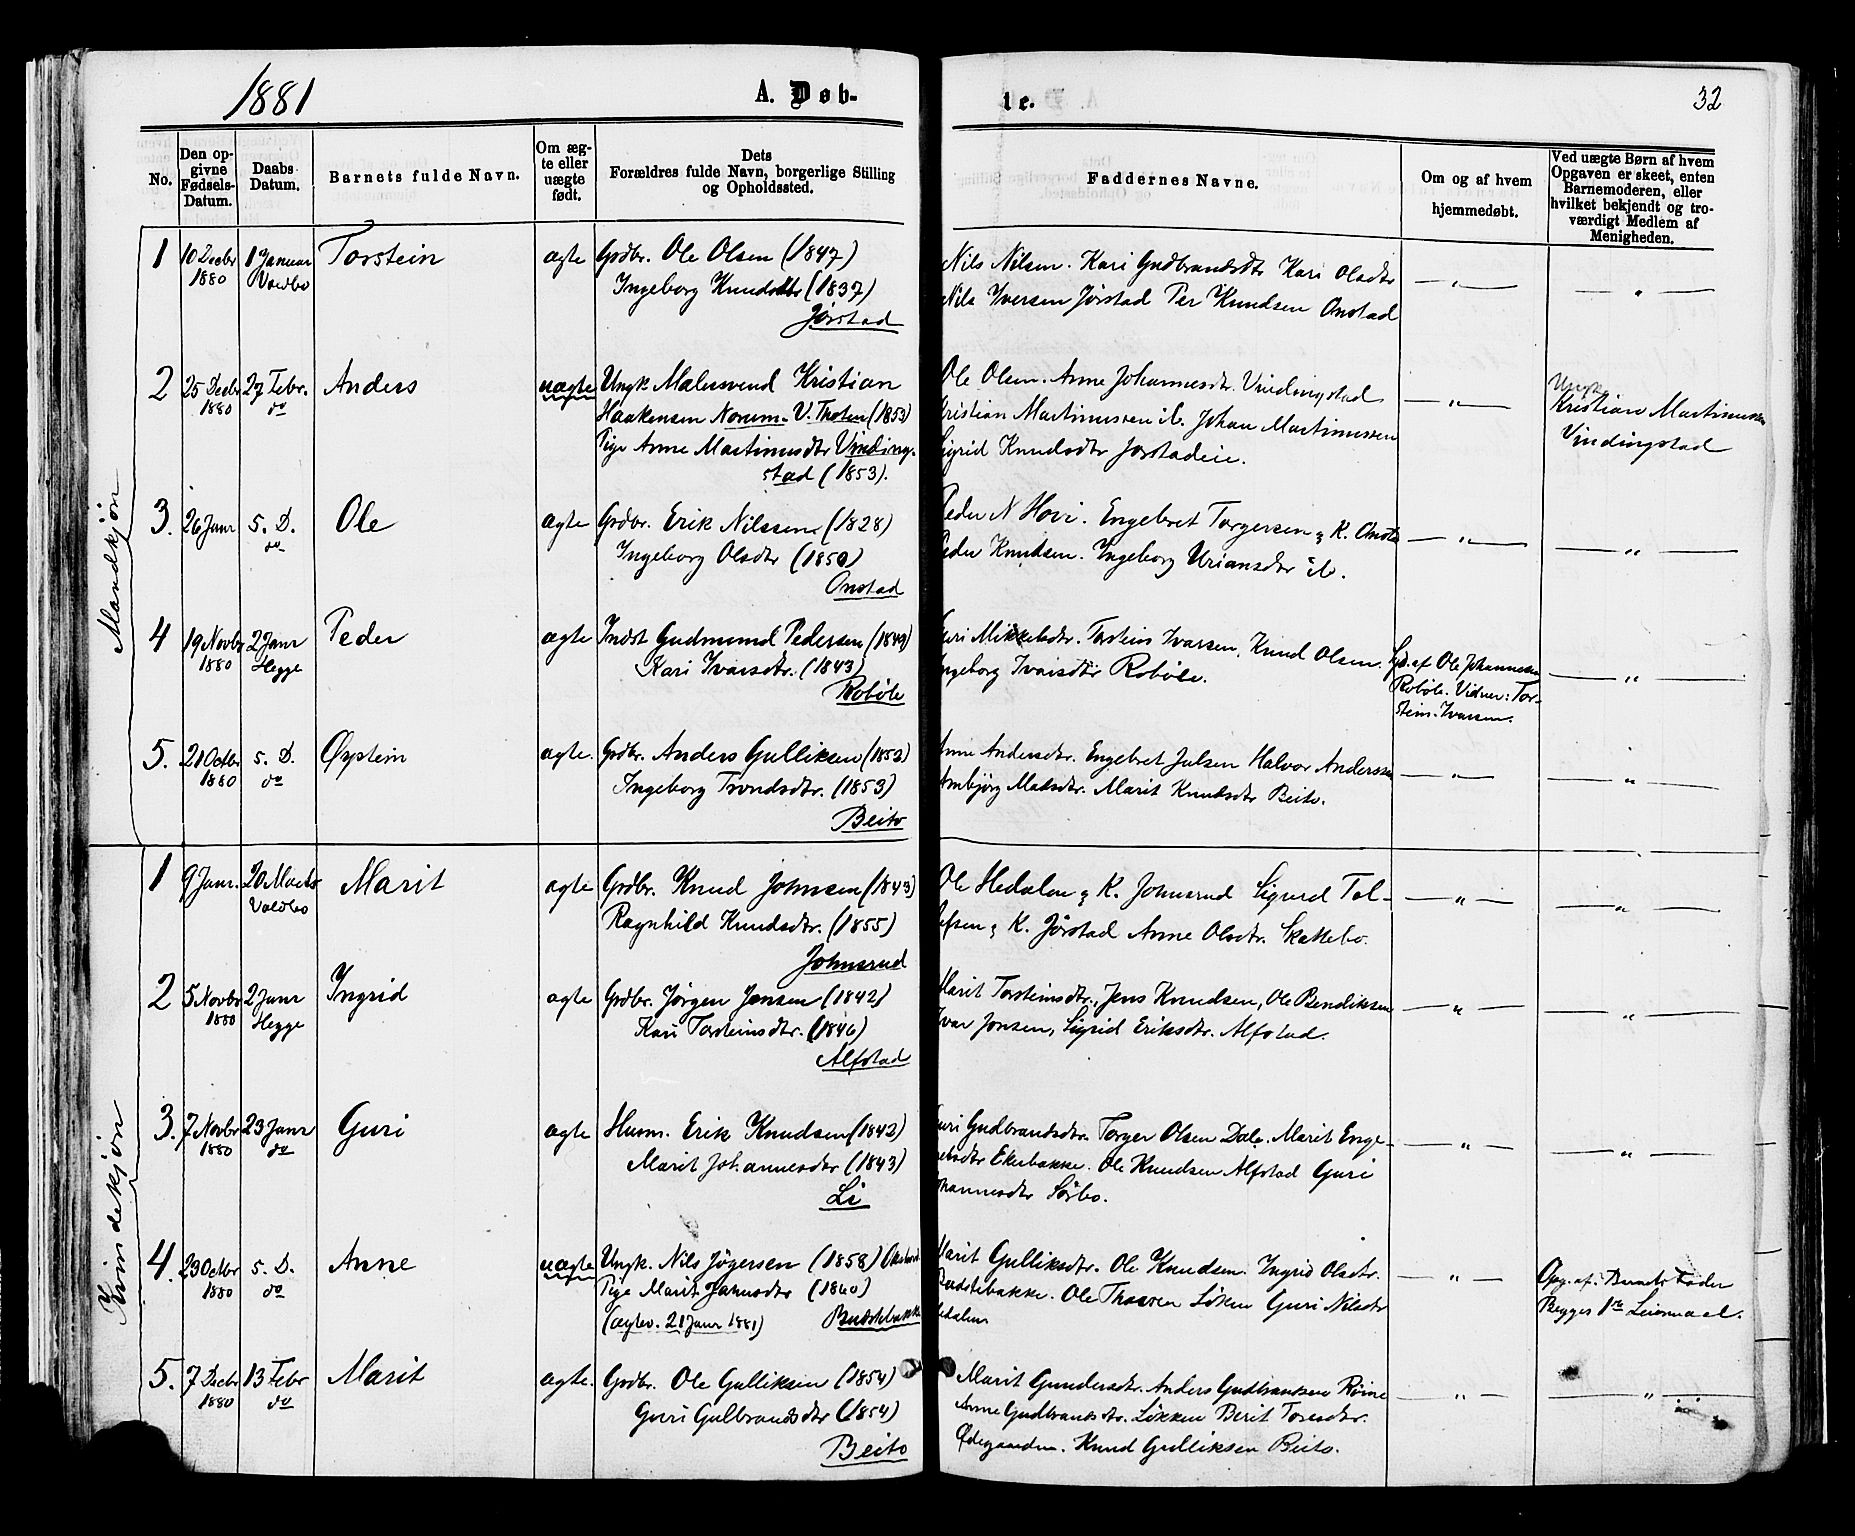 1881
A. Døb-
te.
32
No.
Den op-
givne
Fødsels-
Datum.
Daabs
Datum.
Barnets fulde Navn.
Om æg-
te eller
uægte
født.
Dets
Forældres fulde Navn, borgerlige Stilling
og Opholdssted.
Faddernes Navne.
Om og af hvem
hjemmedøbt.
Ved uægte Børn af hvem
Opgaven er skeet, enten
Barnemoderen, eller
hvilket bekjendt og tro-
værdigt Medlem af
Menigheden.
Mandkjøn
1 10 Decbr 1 Januar Torstein ægte Grdbr. Ole Olsen (1847)
1880 Voldbo Ingeborg Knudsdtr (1837)
Jørstad
Nils Nilsen. Kari Gudbrandsdtr Kari Olsdtr
Nils Iversen Jørstad Per Knudsen Onstad
— " —
— " —
2 25 Decbr 27 Febr. Anders uægte Ungk. Malersvend Kristian
1880 do Haakensen Norum. V. Thoten (1853)
Pige Anne Martinusdtr Vinding-
stad (1853).
Ole Olsen. Anne Johannesdtr. Vindingstad
Kristian Martinussen ib. Johan Martinussen
Sigrid Knudsdtr Jørstadeie.
— " —
Ungk.
Kristian Martinussen
Vindingstad
3. 26 Janr 5. D. Ole ægte Grdbr. Erik Nilssen (1828)
do Ingeborg Olsdtr (1850)
Onstad
Peder N Hovi. Engebret Torgersen & K. Onstad
Peder Knudsen. Ingeborg Uriansdtr ib.
— " —
— " —
4 19 Novbr 2 Janr Peder ægte Indst Gudmund Pedersen (1849)
1880 Hegge Kari Ivarsdtr. (1843)
Robøle
Guri Mikkelsdtr. Torstein Ivarsen, Knud Olsen.
Ingeborg Ivarsdtr Robøle.
af Ole Johannessen
Robøle. Vidner: Tor-
stein Ivarsen.
— " —
5. 21 Octbr 5. D. Øystein ægte. Grdbr. Anders Gulliksen (1853)
1880 do Ingeborg Trondsdtr. (1853)
Beito
Anne Andersdtr. Engebret Julsen Halvor Anderssen
Arnbjørg Madsdtr. Marit Knudsdtr Beito.
— " —
— " —
Kvindekjøn
1 9 Janr. 20 Marts Marit ægte Grdbr. Knud Johnsen (1843)
Voldbo Ragnhild Knudsdtr. (1855)
Johnsrud
Ole Hedalen & K. Johnsrud Sigurd Tol-
lefsen & K. Jørstad Anne Olsdtr. Skattebo.
— " —
— " —
2 5 Novbr 2 Janr Ingrid ægte Grdbr. Jørgen Jensen (1842)
1880 Hegge Kari Torsteinsdtr. (1846)
Alfstad
Marit Torsteinsdtr., Jens Knudsen, Ole Bendiksen
Ivar Jonsen, Sigrid Eriksdtr. Alfstad.
— " —
— " —
3. 7 Novbr 23 Janr Guri ægte Husm. Erik Knudsen (1842)
1880 do Marit Johannesdtr (1843)
Li
Guri Gudbrandsdtr. Torger Olsen Dale. Marit Enge-
bretsdtr Ekerbakke. Ole Knudsen Alfstad Guri
Johannesdtr Sørbo.
— " —
— " —
4. 23 Octbr 5. D. Anne uægte Ungk. Nils Jørgersen (1858)
1880 do Pige Marit Johnsdtr (1860)
(ægtev. 21 Janr 1881)
Marit Gulliksdtr. Ole Knudsen. Ingrid Olsdtr.
Ole Løken Guri Nilsdtr
Hedalen
— " —
Opg. af: Barnets Fader
Begges 1ste Leiermaal.
5. 7 Decbr 13 Febr Marit ægte. Grdbr. Ole Gulliksen (1854)
1880 do Guri Gulbrandsdtr (1854)
Beito
Marit Gundersdtr. Anders Gudbrandsen Røine
Anne Gudbrandsdtr. Løkken Berit Toresdtr.
Ødegaarden. Knud Gulliksen Beito.
— " —
— " —